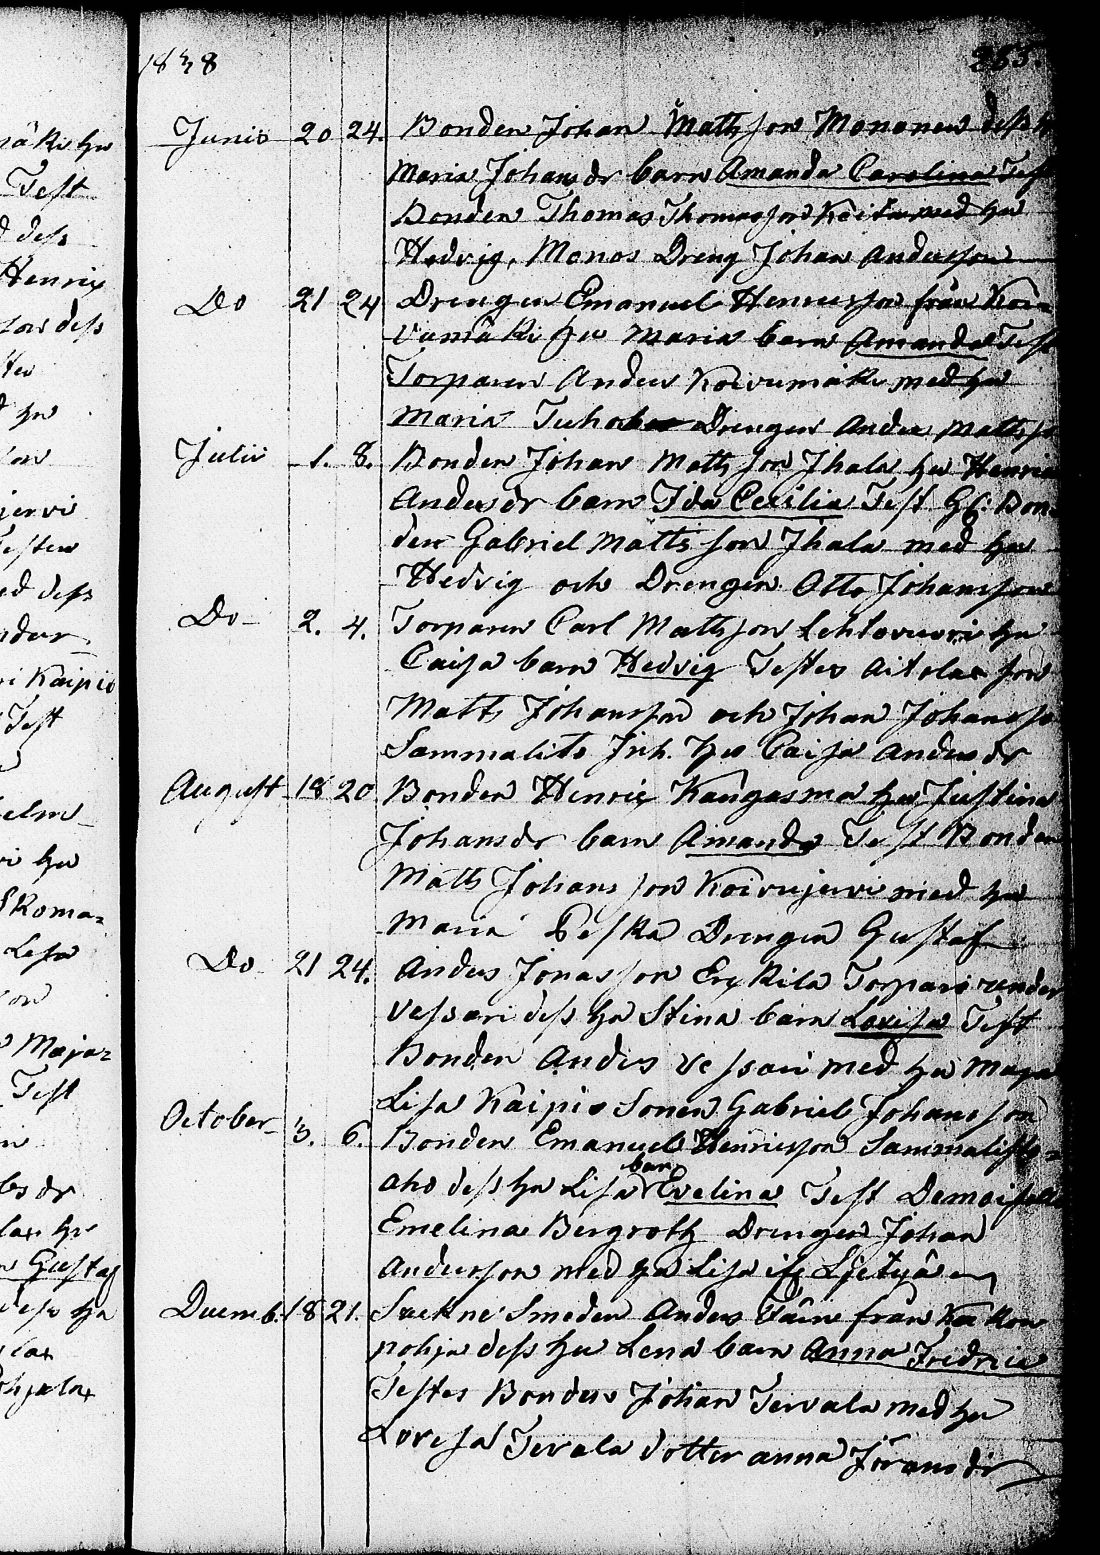 1838
285.
Junio 20 24. Bonden Johan Mattsson Mononen dess h
Maria Johansdr barn Amanda Carolina Test
Bonden Thomas Thomasson Koita med hu
Hedvig, Monos Dreng Johan Andersson
Do 21 24 Drengen Emanuel Henricsson från Koi-
vumäki hu Maria barn Amanda Test
Torparen Anders Koivumäki med hu
Maria Drengen Anders Mattss
Julii 1. 8. Bonden Johan Mattsson Jhala hu Henrica
Andersdr barn Ida Cecilia Test Gl: Bon-
den Gabriel Mattsson Jhala med hu
Hedvig och Drengen Otto Johansson
Do 2. 4. Torparen Carl Mattsson Lehtovuori hu
Caisa barn Hedvig Testes Aitolax son
Matts Johansson och Johan Johansso
Sammalisto Inh. hu Caisa Andersdr
August 18 20 Bonden Henric Kangasma hu Justina
Johansdr barn Amanda Test Bonden
Matts Johansson Koivujervi med hu
Maria Peska Drengen Gustaf
Do 21 24. Anders Jonasson Erkkilä Torpare under
Vessari dess hu Stina barn Lovisa Test
Bonden Anders Vessari med hu Maja
Lisa Kaipio Sonen Gabriel Johansson
October 3. 6. Bonden Emanuel Henricsson Sammalisto-
aho dess hu Lisa barn Evelina Test Demoiselle
Emelina Bergroth Drengen Johan
Andersson med hu Lisa
Decemb. 18 21. Sockne Smeden Anders från Kakon
pohja dess hu Lena barn Anna Fredrica
Testes Bonden Johan Tervala med hu
Lovisa Tervala dotter Anna Jöransdr
äki hu
Test
d dess
Henric
son dess
d hu
son
jervi
Testes
ed dess
nder
ri Kaipio
Test
elm
ri hu
Skoma-
Lisa
son
Maja-
Test
bsdr
lax hu
n Gustaf
dess hu
lax
ohjalax